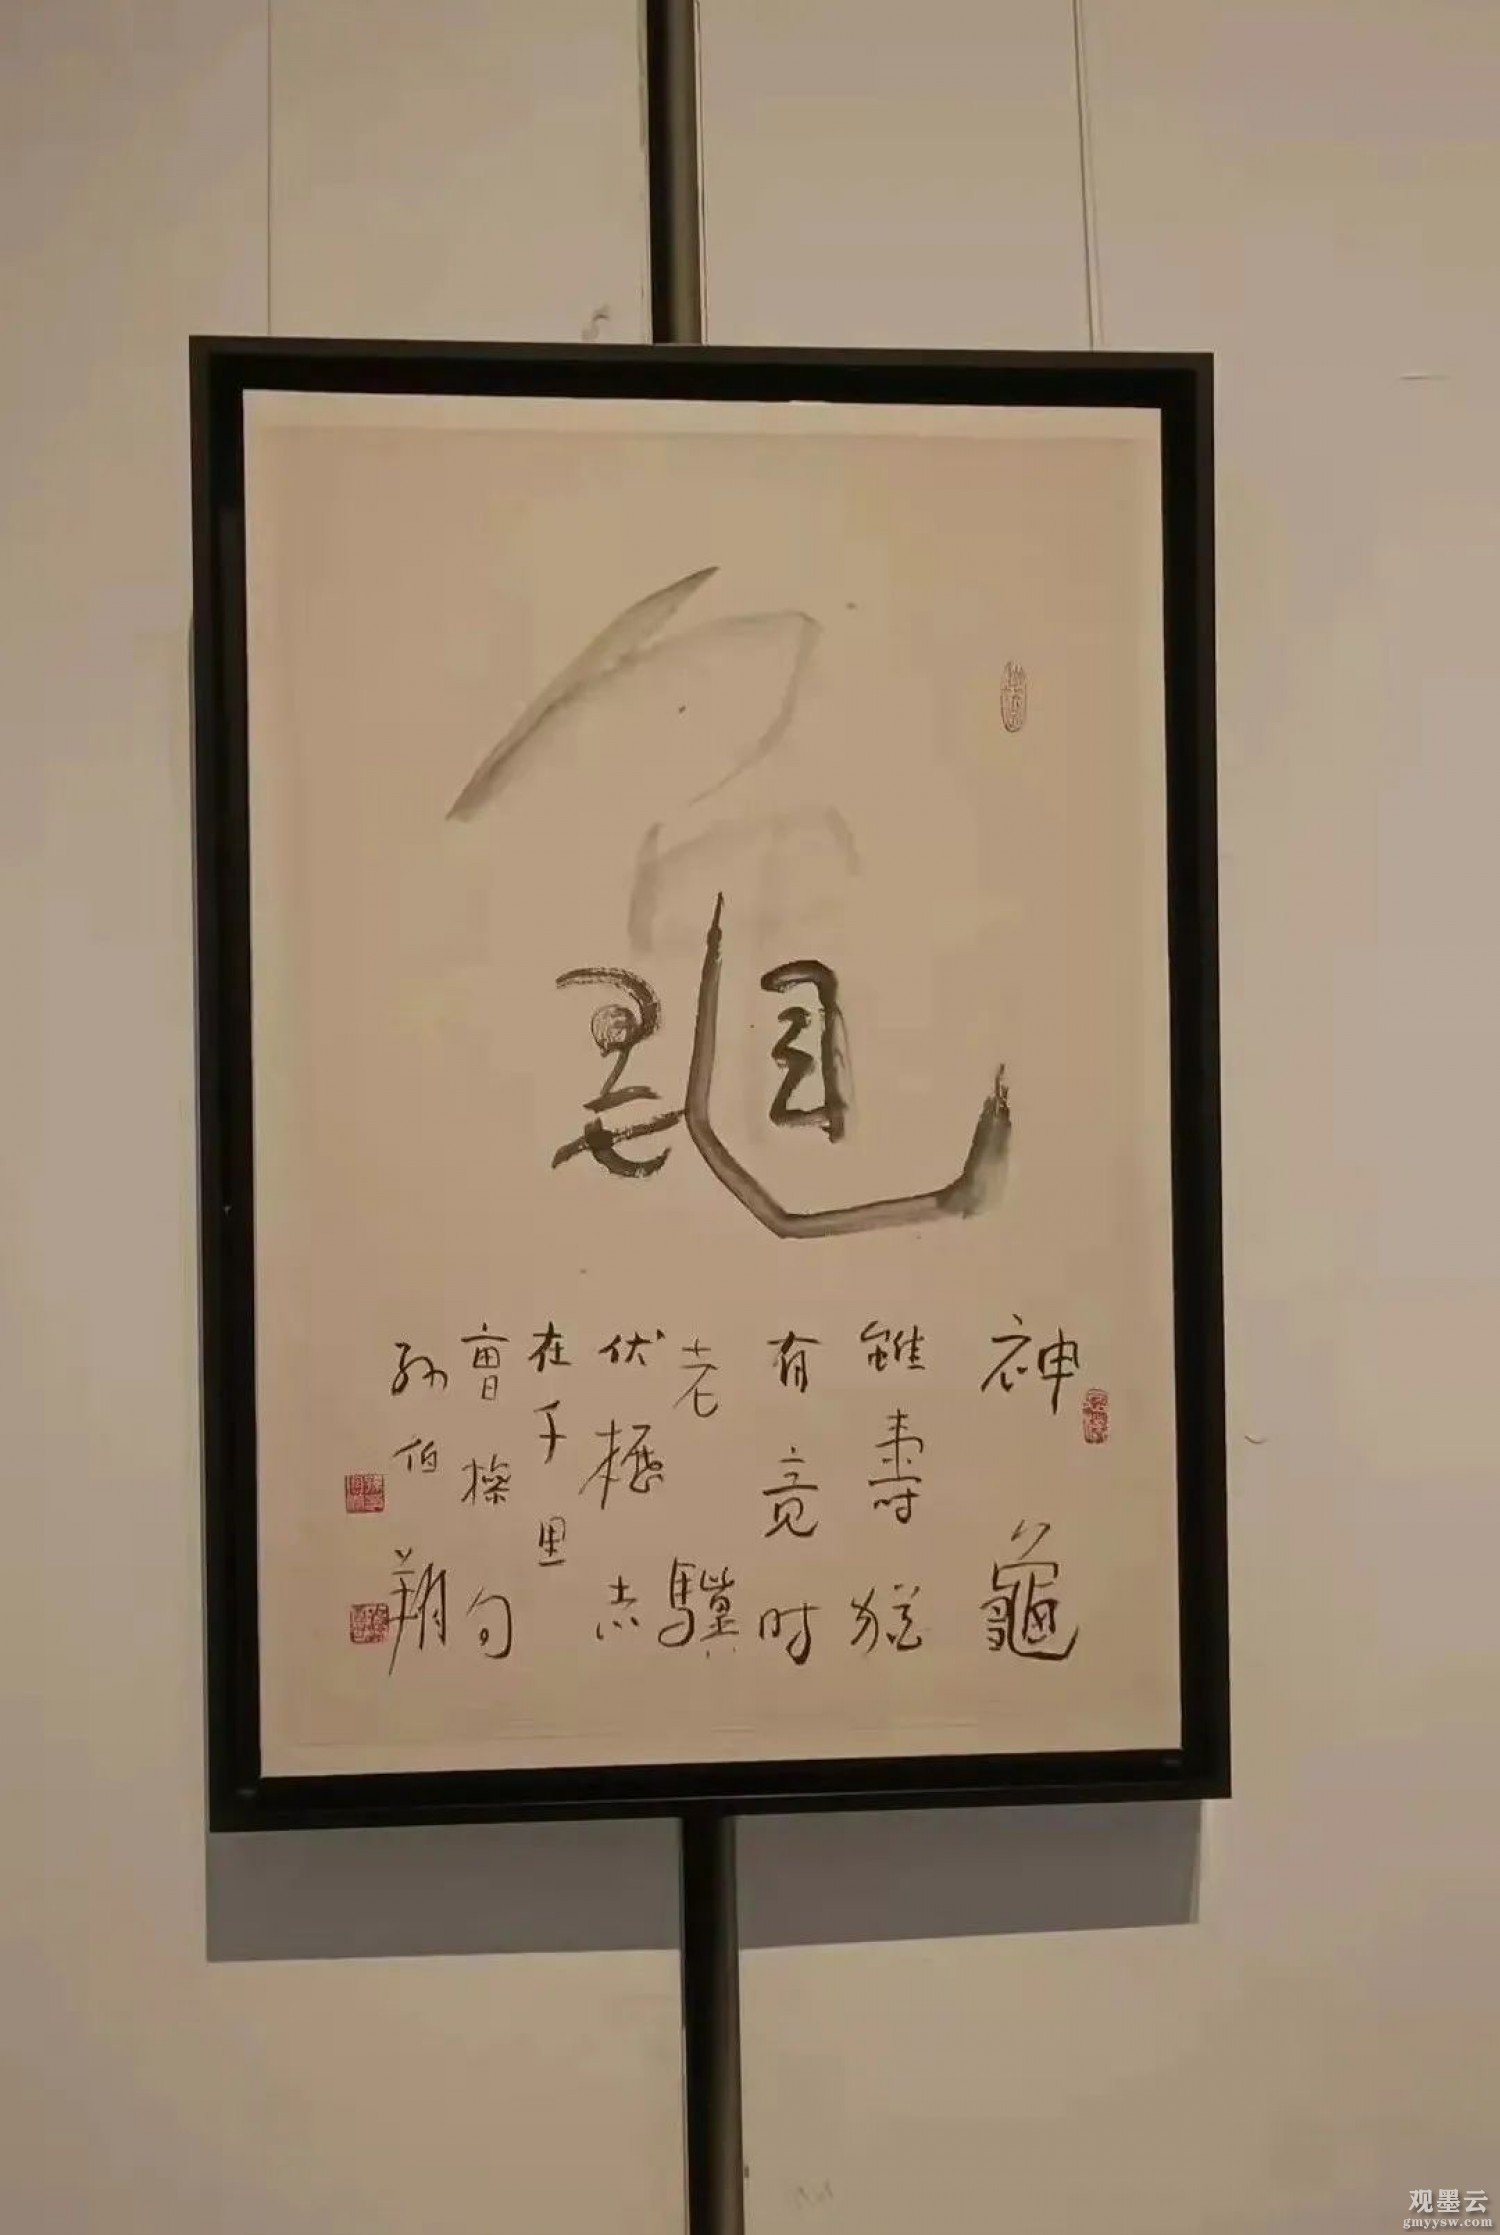 龜
神龜
雖壽猶
有竟時
老驥
伏櫪志
在千里
曹操句
孙伯翔
观墨云
gmyysw.com